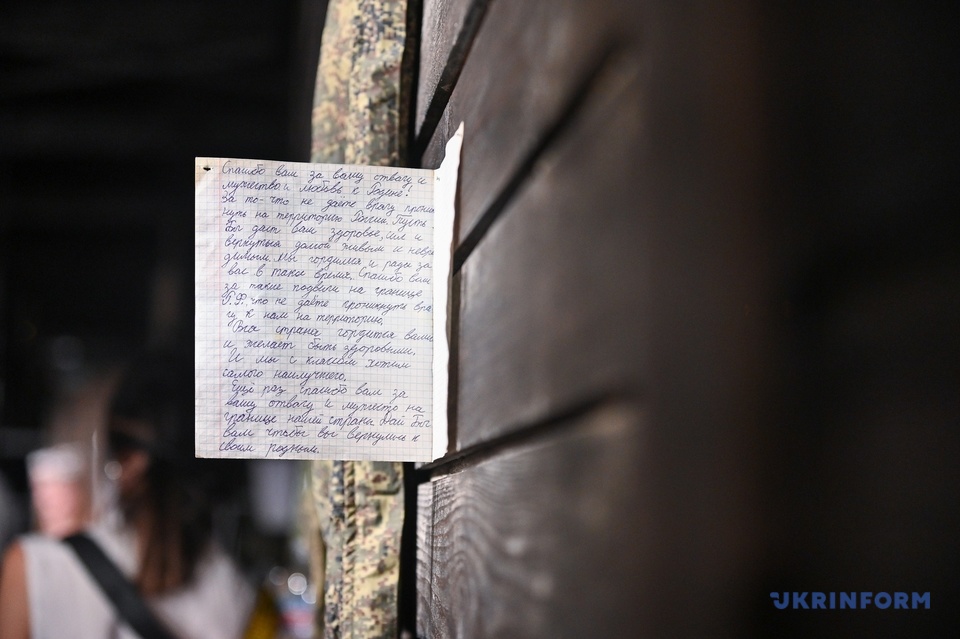 Спасибо вам за вашу отвагу и
мужество и любовь к Родине!
За то-что не даёте врагу прони
нуть на территорию России. Пусть
Бог даст вам здоровье, сил и
вернуться домой живым и невре
димым. Мы гордимся и рады за
вас в такое время. Спасибо вам
за такие подвиги на границе
Р.Ф. что не даёте проникнуть вра
гу, к нам на территорию.
Вся страна гордится вами
и желает быть здоровыми.
И мы с классом хотим
самого наилучшего.
Ещё раз спасибо вам за
вашу отвагу и мужество на
границе нашей страны. Дай Бог
вам чтобы вы вернулись к
своим родным.
UKRINFORM